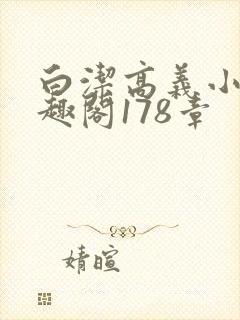 白潔高義小
趣閣178章
婧暄